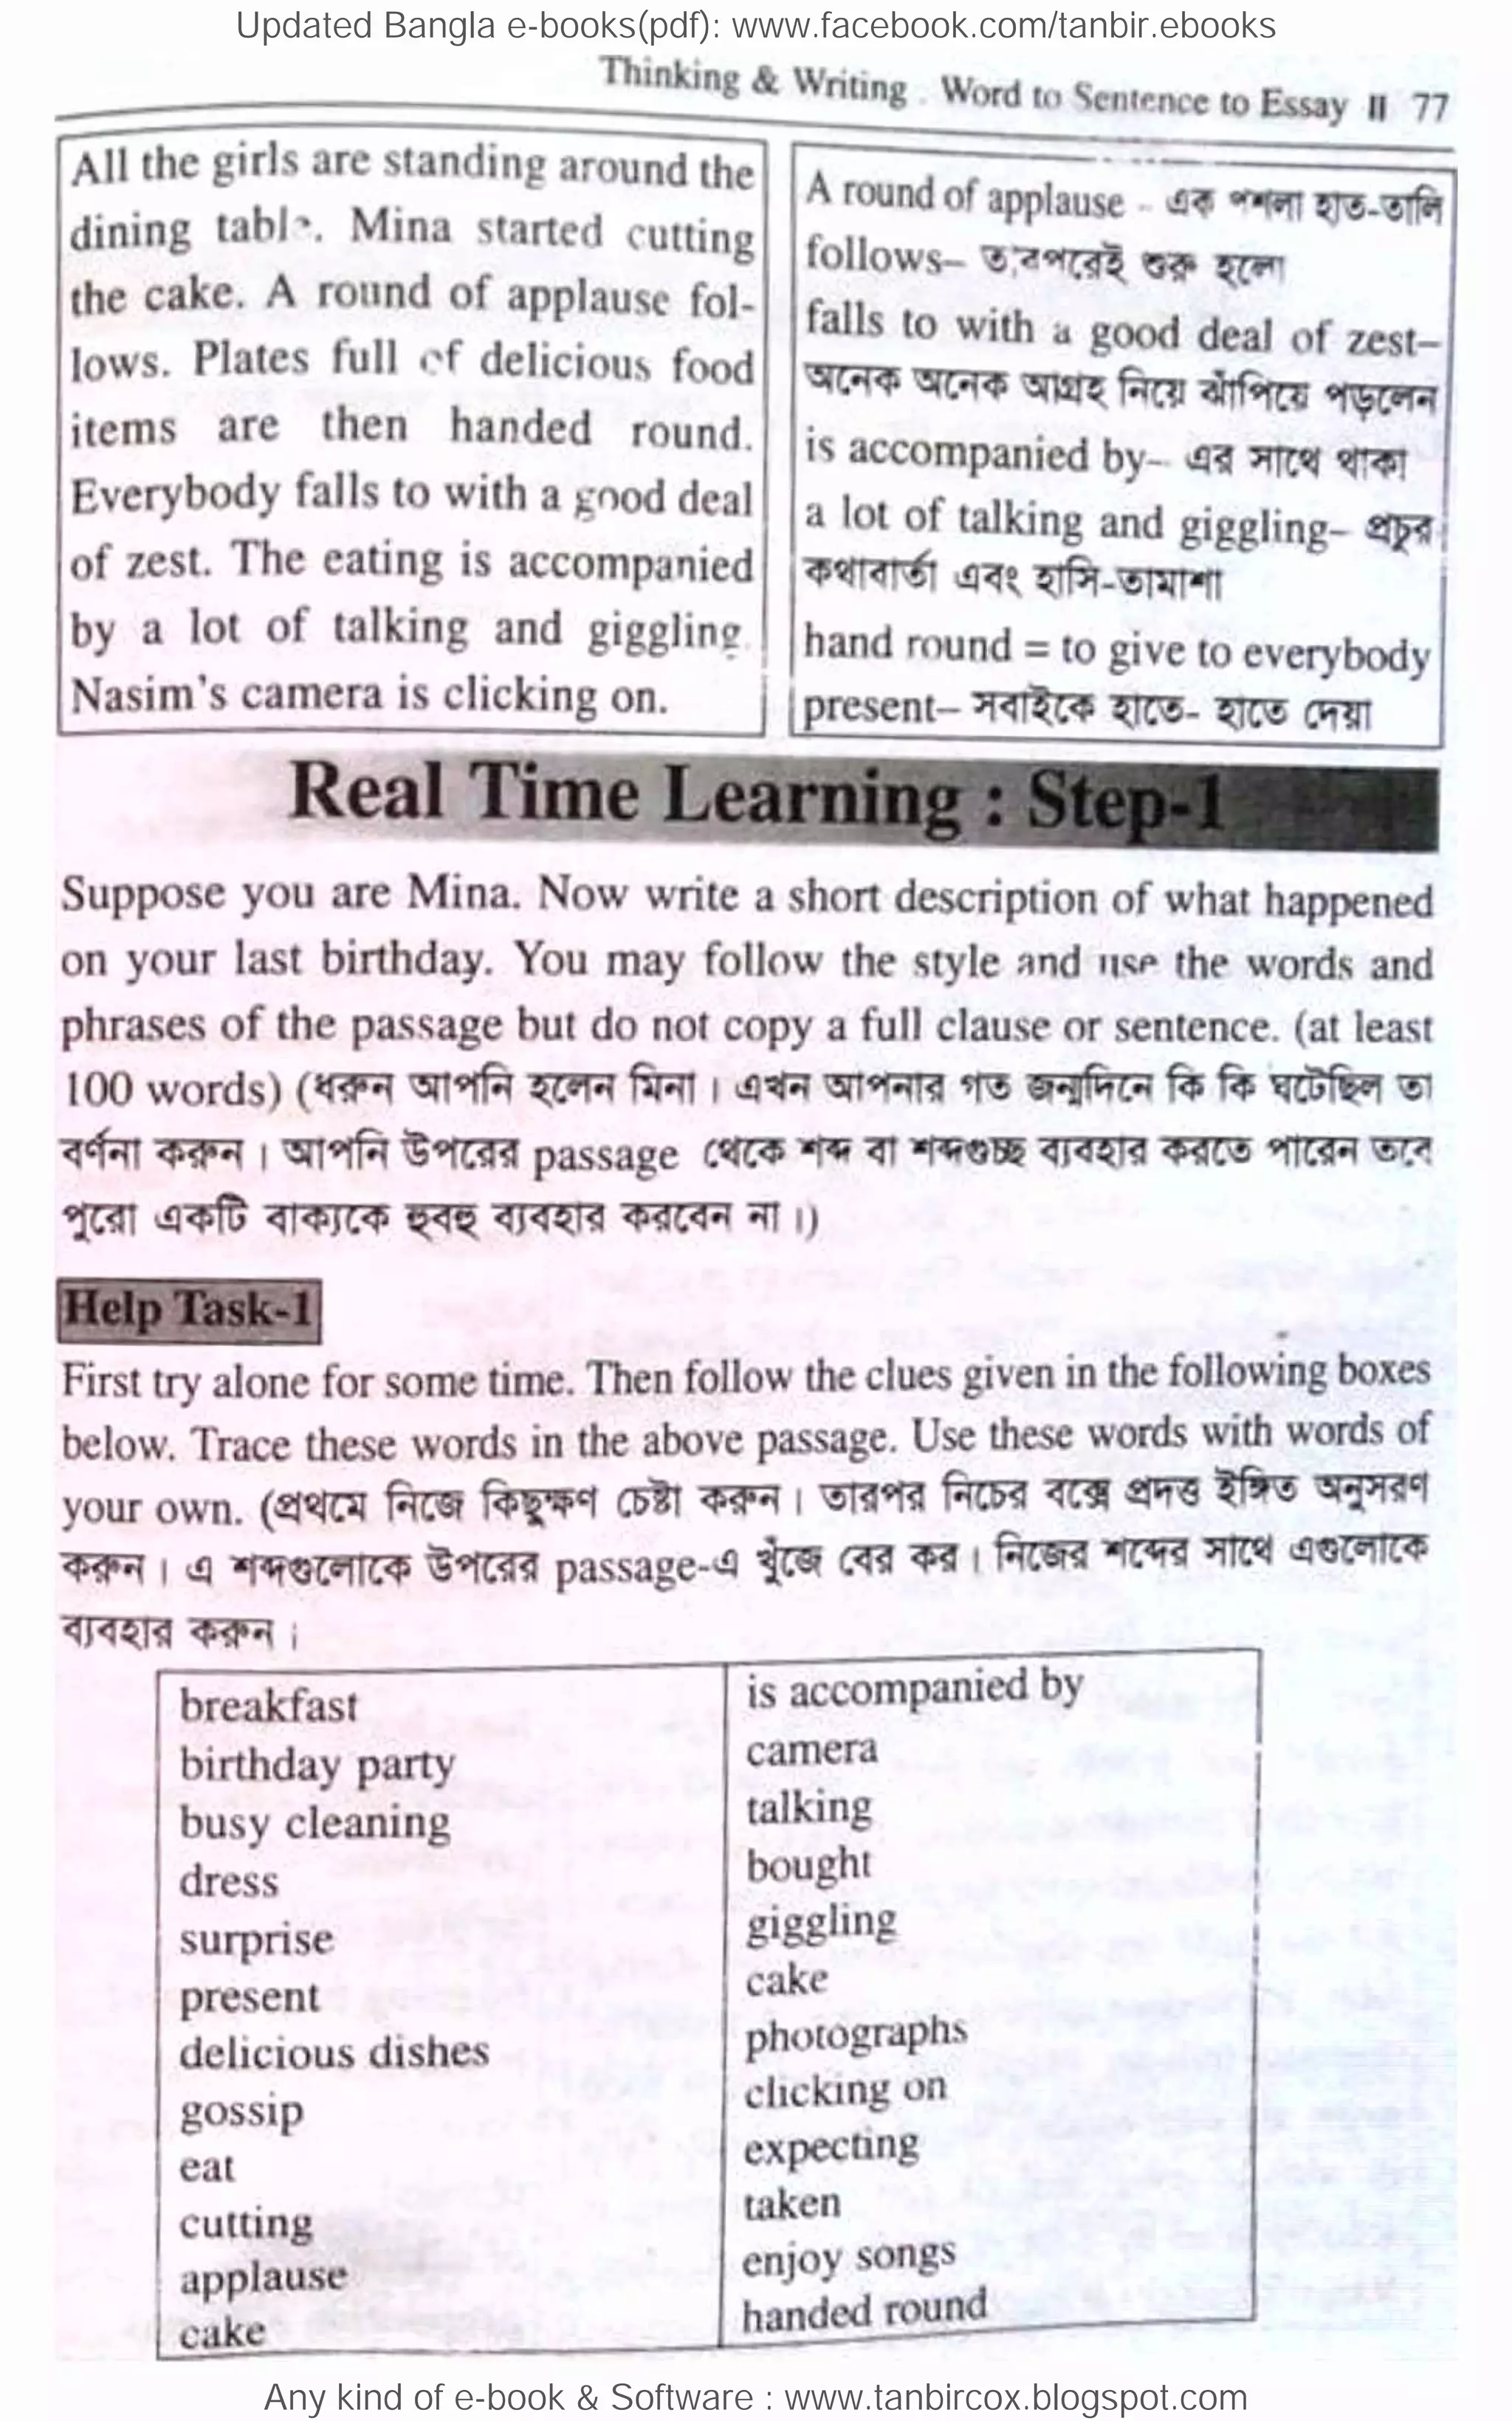 Updated Bangla e-books(pdf): www.facebook.com/tanbir.ebooks
Thinking & Writing . Word to Sentence to Essay II 77
All the girls are standing around the
dining table. Mina started cutting
the cake. A round of applause fol-
lows. Plates full of delicious food
items are then handed round.
Everybody falls to with a good deal
of zest. The eating is accompanied
by a lot of talking and giggling.
Nasim's camera is clicking on.
A round of applause - এক পশলা হাত-তালি
follows– তারপরেই শুরু হলো
falls to with a good deal of zest–
অনেক অনেক আগ্রহ নিয়ে ঝাঁপিয়ে পড়লেন
is accompanied by– এর সাথে থাকা
a lot of talking and giggling– প্রচুর
কথাবার্তা এবং হাসি-তামাশা
hand round = to give to everybody
present– সবাইকে হাতে- হাতে দেয়া
Real Time Learning : Step-1
Suppose you are Mina. Now write a short description of what happened
on your last birthday. You may follow the style and use the words and
phrases of the passage but do not copy a full clause or sentence. (at least
100 words) (ধরুন আপনি হলেন মিনা। এখন আপনার গত জন্মদিনে কি কি ঘটেছিল তা
বর্ণনা করুন। আপনি উপরের passage থেকে শব্দ বা শব্দগুচ্ছ ব্যবহার করতে পারেন তবে
পুরো একটি বাক্যকে হুবহু ব্যবহার করবেন না।)
Help Task-1
First try alone for some time. Then follow the clues given in the following boxes
below. Trace these words in the above passage. Use these words with words of
your own. (প্রথমে নিজে কিছুক্ষণ চেষ্টা করুন। তারপর নিচের বক্সে প্রদত্ত ইঙ্গিত অনুসরণ
করুন। এ শব্দগুলোকে উপরের passage-এ খুঁজে বের কর। নিজের শব্দের সাথে এগুলোকে
ব্যবহার করুন।
breakfast
birthday party
busy cleaning
dress
surprise
present
delicious dishes
gossip
eat
cutting
applause
cake
is accompanied by
camera
talking
bought
giggling
cake
photographs
clicking on
expecting
taken
enjoy songs
handed round
Any kind of e-book & Software : www.tanbircox.blogspot.com